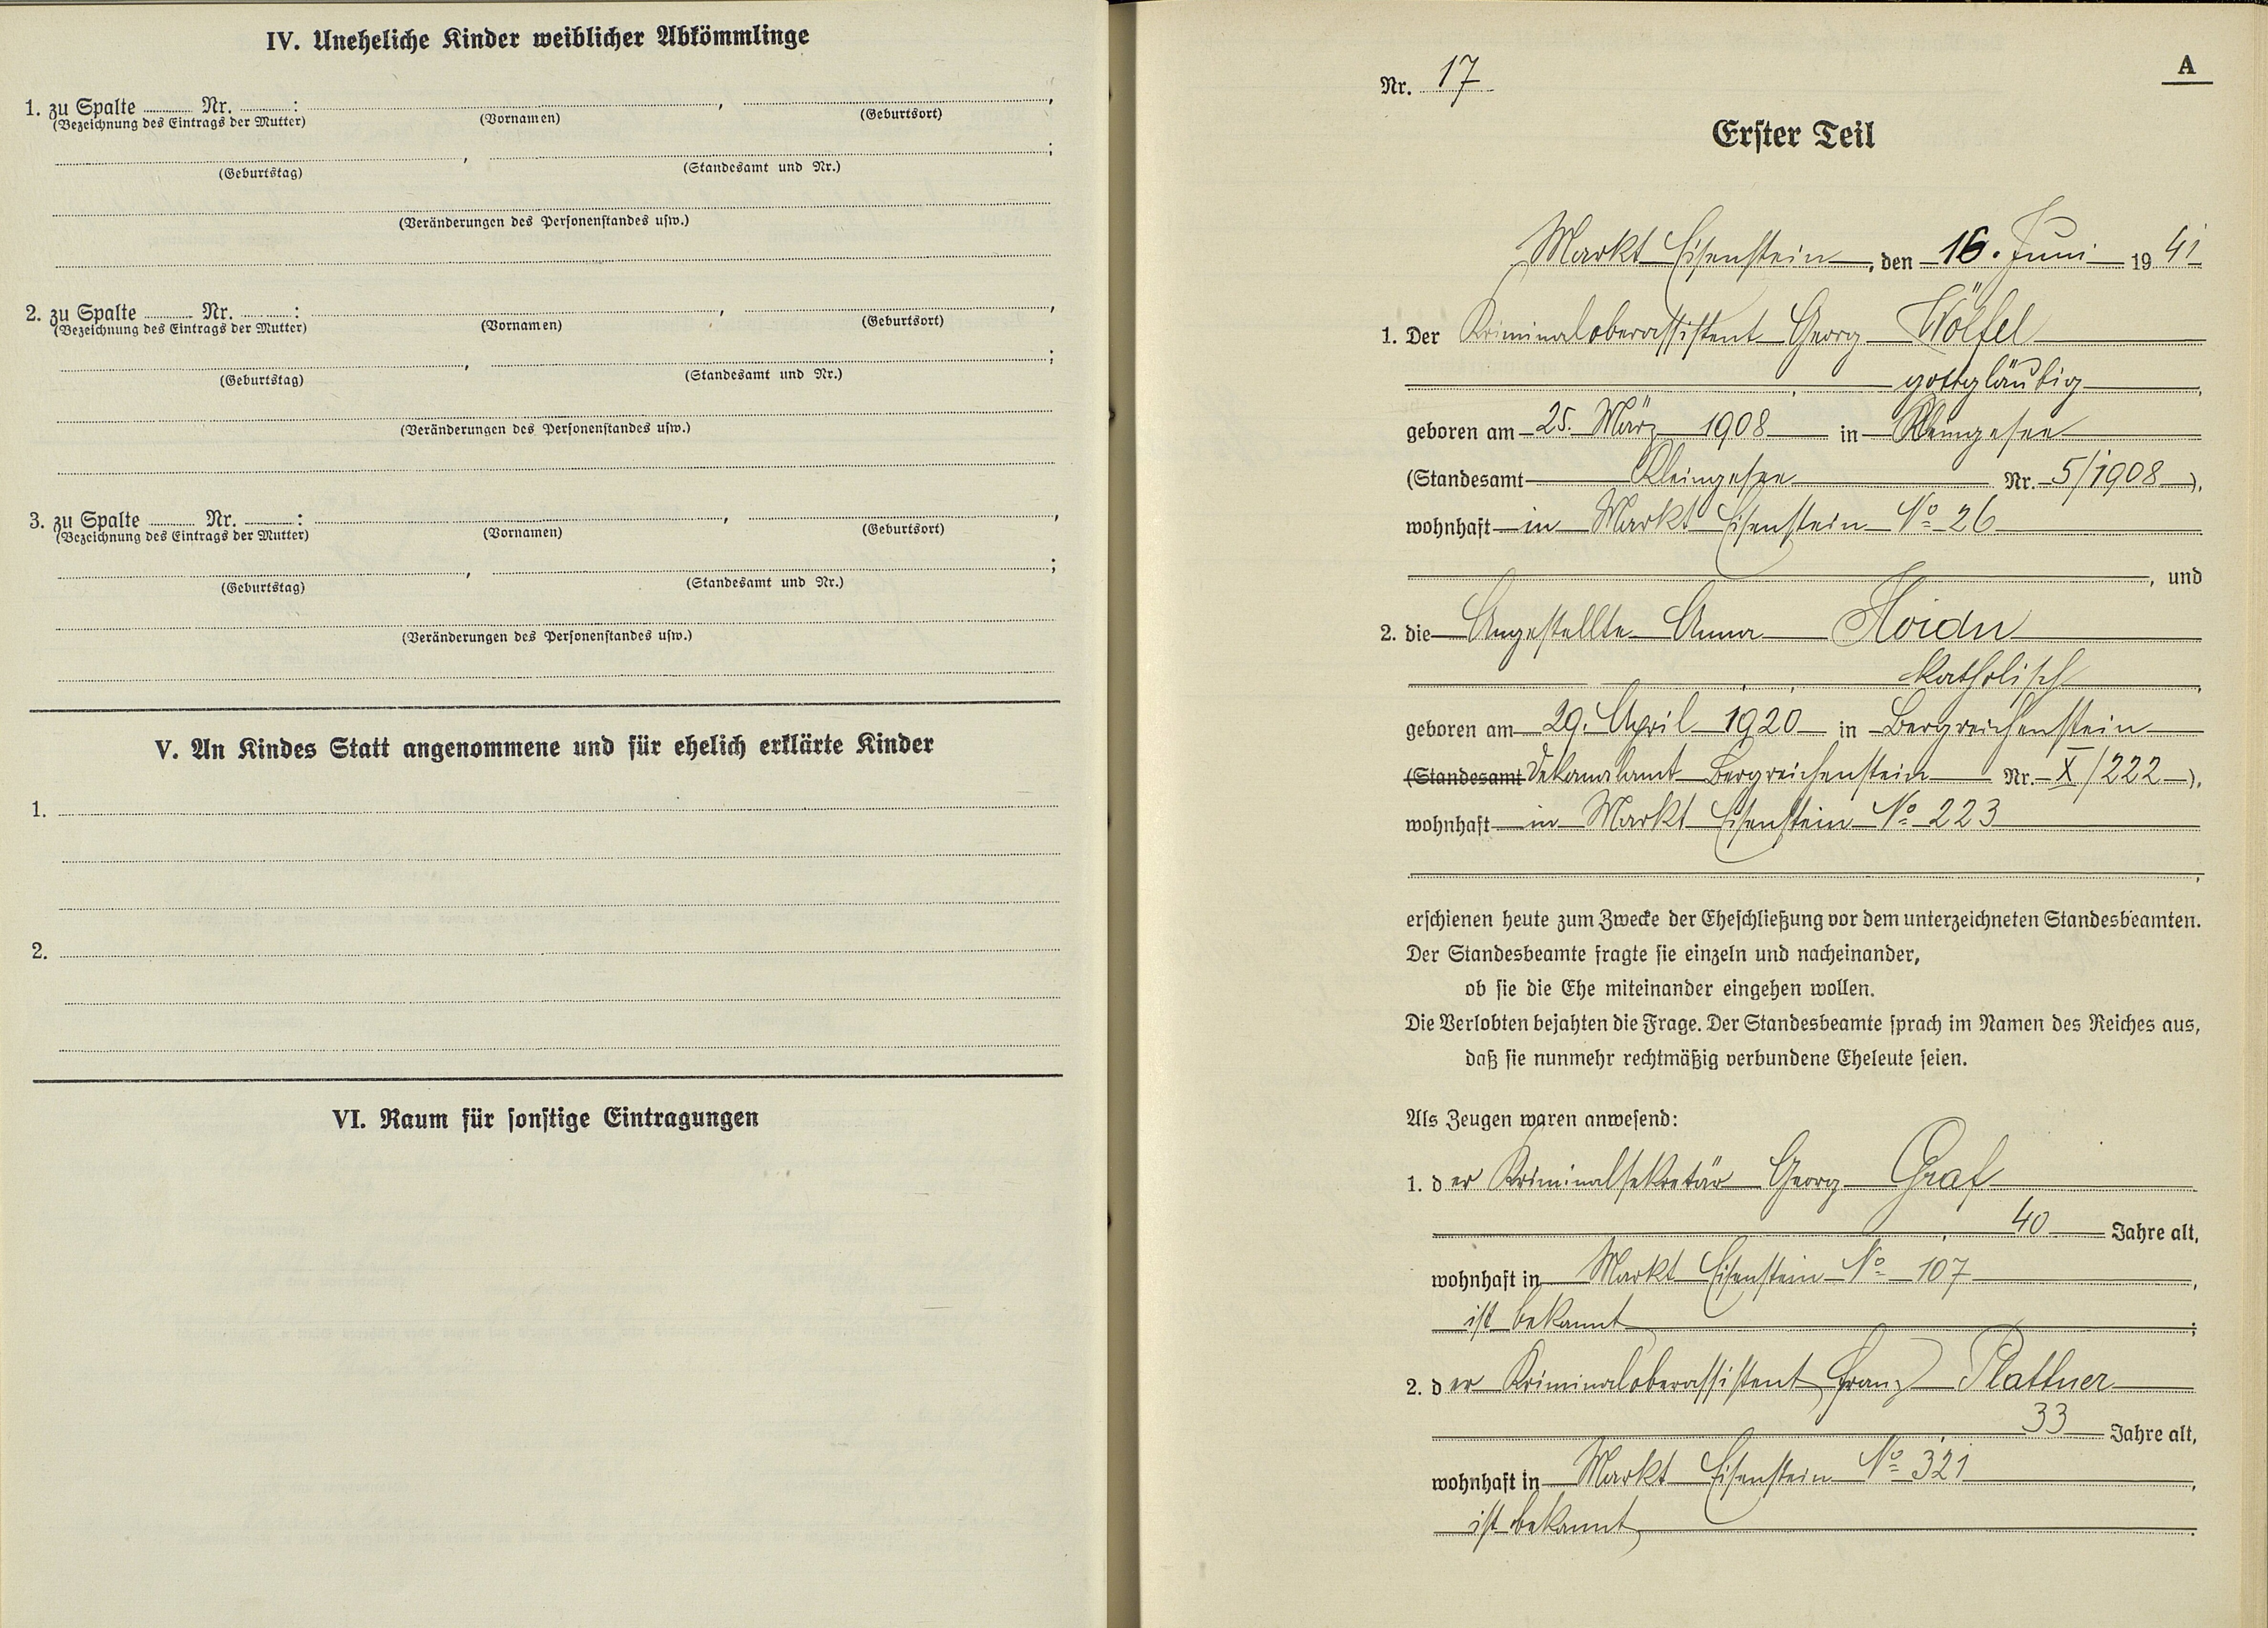 IV. Uneheliche Kinder weiblicher Abkömmlinge
1. zu Spalte ........ Nr. ........ : ........ , ........ ,
(Bezeichnung des Eintrags der Mutter) (Vornamen) (Geburtsort)
........ , ........ ;
(Geburtstag) (Standesamt und Nr.)
(Veränderungen des Personenstandes usw.)
2. zu Spalte ........ Nr. ........ : ........ , ........ ,
(Bezeichnung des Eintrags der Mutter) (Vornamen) (Geburtsort)
........ , ........ ;
(Geburtstag) (Standesamt und Nr.)
(Veränderungen des Personenstandes usw.)
3. zu Spalte ........ Nr. ........ : ........ , ........ ,
(Bezeichnung des Eintrags der Mutter) (Vornamen) (Geburtsort)
........ , ........ ;
(Geburtstag) (Standesamt und Nr.)
(Veränderungen des Personenstandes usw.)
V. An Kindes Statt angenommene und für ehelich erklärte Kinder
1.
2.
VI. Raum für sonstige Eintragungen
A
Nr. 17
Erster Teil
Markt Eisenstein, den 16. Juni 1941
1. Der Kriminaloberassistent Georg Wölfel
, gottgläubig,
geboren am 25. März 1908 in Kleingesee
(Standesamt Kleingesee Nr. 5/1908),
wohnhaft in Markt Eisenstein No 26
, und
2. die Angestellte Anna Hoidn
, katholisch,
geboren am 29. April 1920 in Bergreichenstein
(Standesamt Dekanalamt Bergreichenstein Nr. X/222),
wohnhaft in Markt Eisenstein No 223
,
erschienen heute zum Zwecke der Eheschließung vor dem unterzeichneten Standesbeamten.
Der Standesbeamte fragte sie einzeln und nacheinander,
ob sie die Ehe miteinander eingehen wollen.
Die Verlobten bejahten die Frage. Der Standesbeamte sprach im Namen des Reiches aus,
daß sie nunmehr rechtmäßig verbundene Eheleute seien.
Als Zeugen waren anwesend:
1. der Kriminalsekretär Georg Graf
, 40 Jahre alt,
wohnhaft in Markt Eisenstein No 107,
ist bekannt;
2. der Kriminaloberassistent Franz Plattner
, 33 Jahre alt,
wohnhaft in Markt Eisenstein No 321,
ist bekannt.